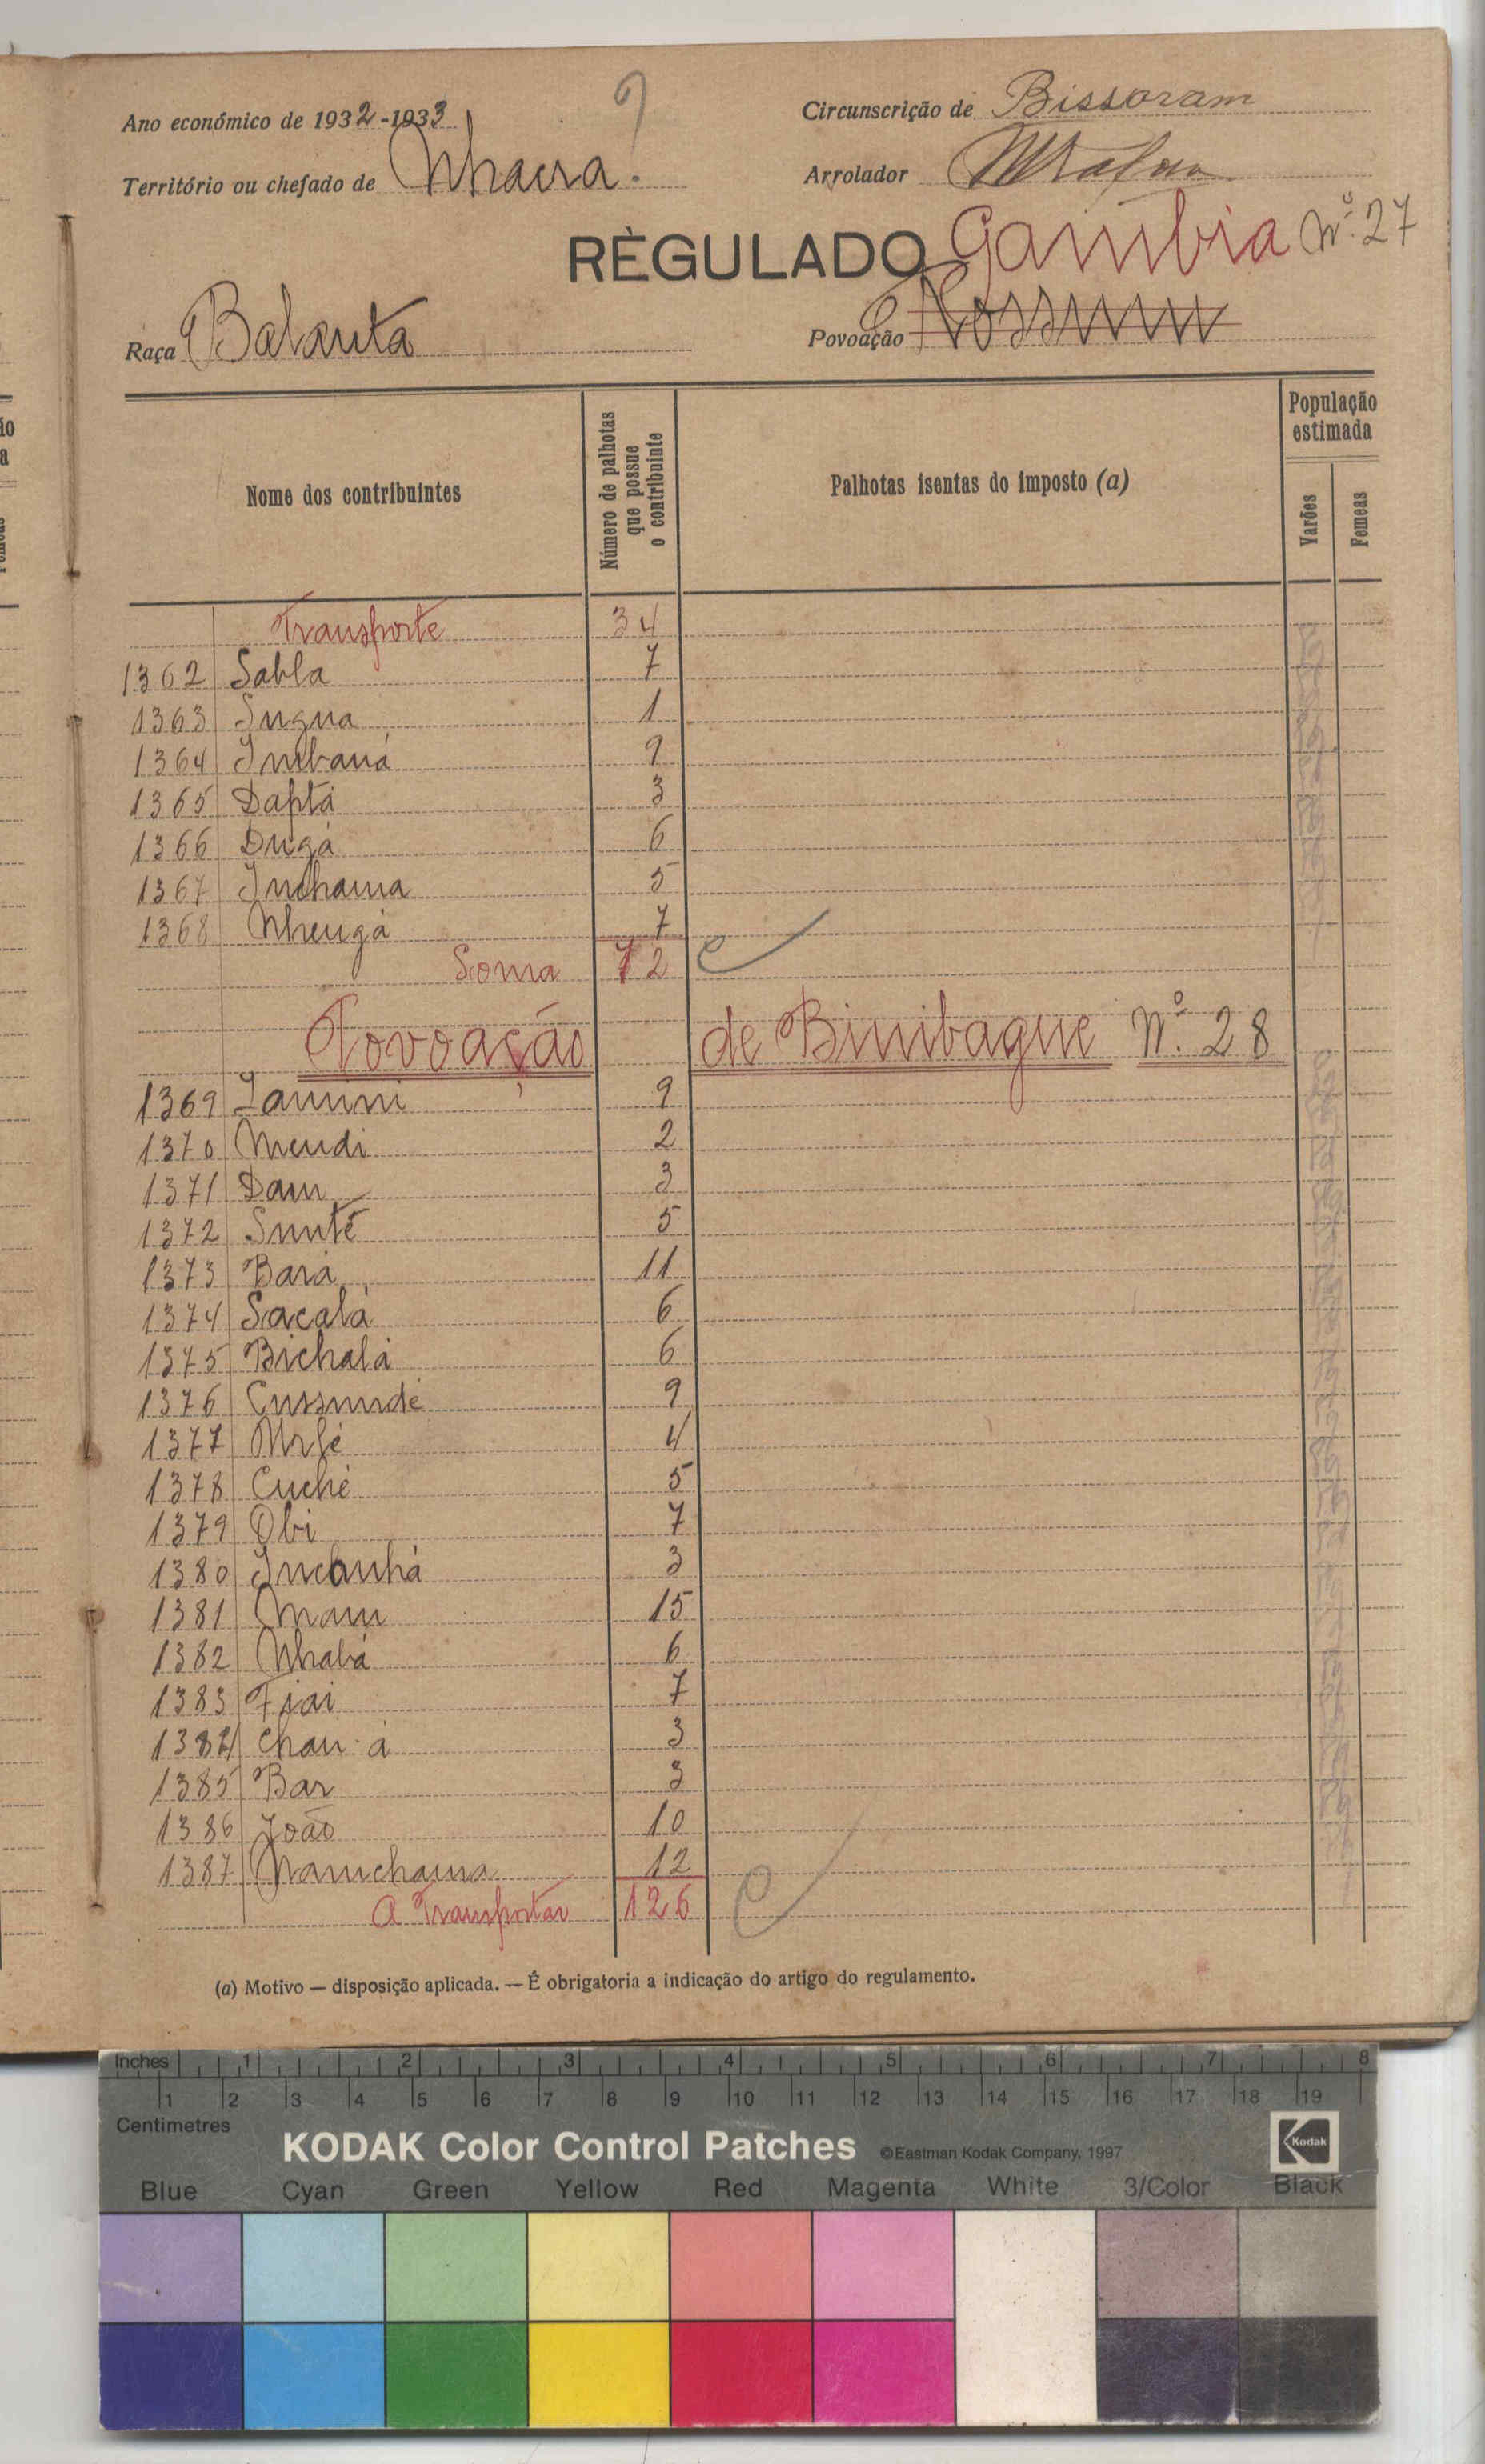 Ano económico de 1932-1933
Território ou chefado de Nhacra.
Circunscrição de Bissoram
Arrolador
RÈGULADO Gambia Nº. 27
Raça Balanta
Povoação
Nome dos contribuintes
Número de palhotas que possue o contribuinte
Palhotas isentas do imposto (a)
População estimada
Varões
Femeas
Transporte 34
1362 Sabla 7
1363 Sugna 1
1364 Imbaná 9
1365 Daftá 3
1366 Dugá 6
1367 Inchama 5
1368 Nhengá 7
Soma 72
Povoação de Binibague Nº. 28
1369 Iamim 9
1370 Mendi 2
1371 Dam 3
1372 Sunté 5
1373 Bará 11
1374 Sacalá 6
1375 Bichalá 6
1376 Cussundé 9
1377 4
1378 Cuché 5
1379 Obi 7
1380 Inconhá 3
1381 Mam 15
1382 Nhabá 6
1383 Fiai 7
1384 Chan-á 3
1385 Bar 3
1386 João 10
1387 Namchama 12
A Transportar 126
(a) Motivo — disposição aplicada. — É obrigatoria a indicação do artigo do regulamento.
Inches 1 2 3 4 5 6 7 8
1 2 3 4 5 6 7 8 9 10 11 12 13 14 15 16 17 18 19
Centimetres
KODAK Color Control Patches ©Eastman Kodak Company, 1997 Kodak
Blue Cyan Green Yellow Red Magenta White 3/Color Black